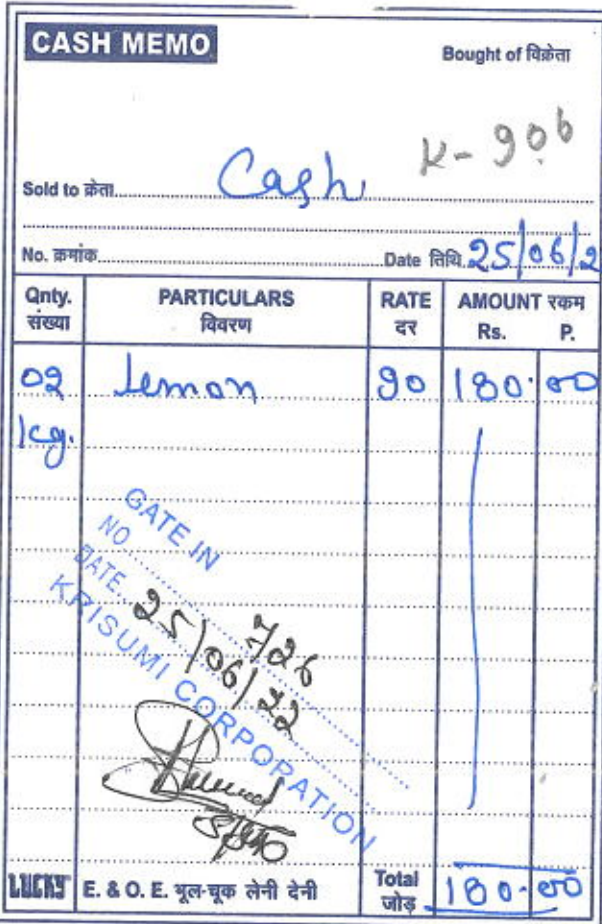 CASH MEMO
Bought of विक्रेता
K-906
Sold to क्रेता Cash
No. क्रमांक Date तिथि 25/06/2
Qnty. PARTICULARS RATE AMOUNT रकम
संख्या विवरण दर Rs. P.
02 Lemon 90 180.00
kg.
GATE IN
NO 726
DATE 25/06/22
KRISUMI CORPORATION
LUCKY E. & O. E. भूल-चूक लेनी देनी Total जोड़ 180.00